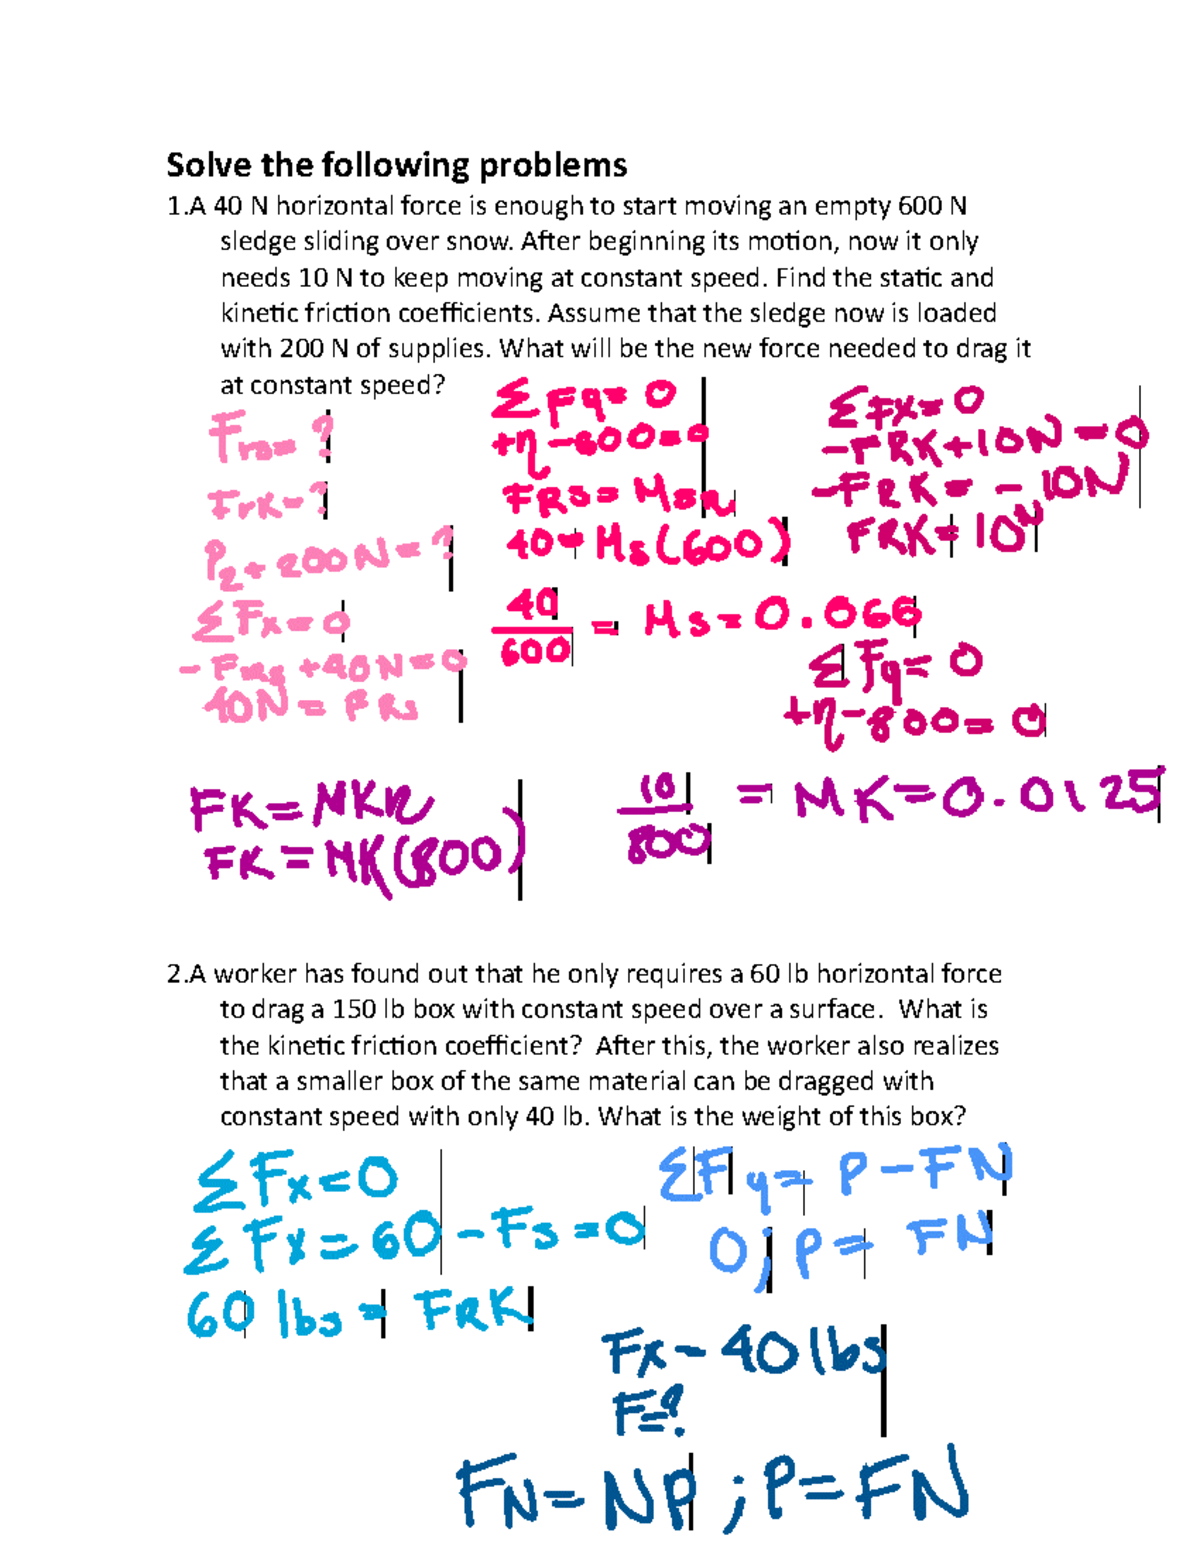 Solve the following problems
1.A 40 N horizontal force is enough to start moving an empty 600 N
sledge sliding over snow. After beginning its motion, now it only
needs 10 N to keep moving at constant speed. Find the static and
kinetic friction coefficients. Assume that the sledge now is loaded
with 200 N of supplies. What will be the new force needed to drag it
at constant speed?
FrK=?
P2+200N=?
ΣFx=0
+40N=0
40N=FRs
ΣFy=0
+η-600=0
FRS=
40=Ms(600)
40/600 = Ms=0.066
ΣFX=0
-FRK+10N=0
-FRK=-10N
FRK=10N
ΣFy=0
+η-800=0
FK=MKη
FK=MK(800)
10/800 = MK=0.0125
2.A worker has found out that he only requires a 60 lb horizontal force
to drag a 150 lb box with constant speed over a surface. What is
the kinetic friction coefficient? After this, the worker also realizes
that a smaller box of the same material can be dragged with
constant speed with only 40 lb. What is the weight of this box?
ΣFx=0
ΣFx=60-Fs=0
60 lbs = FRK
ΣFy= P-FN
0; P= FN
Fx-40lbs
F=?
FN=NP;P=FN